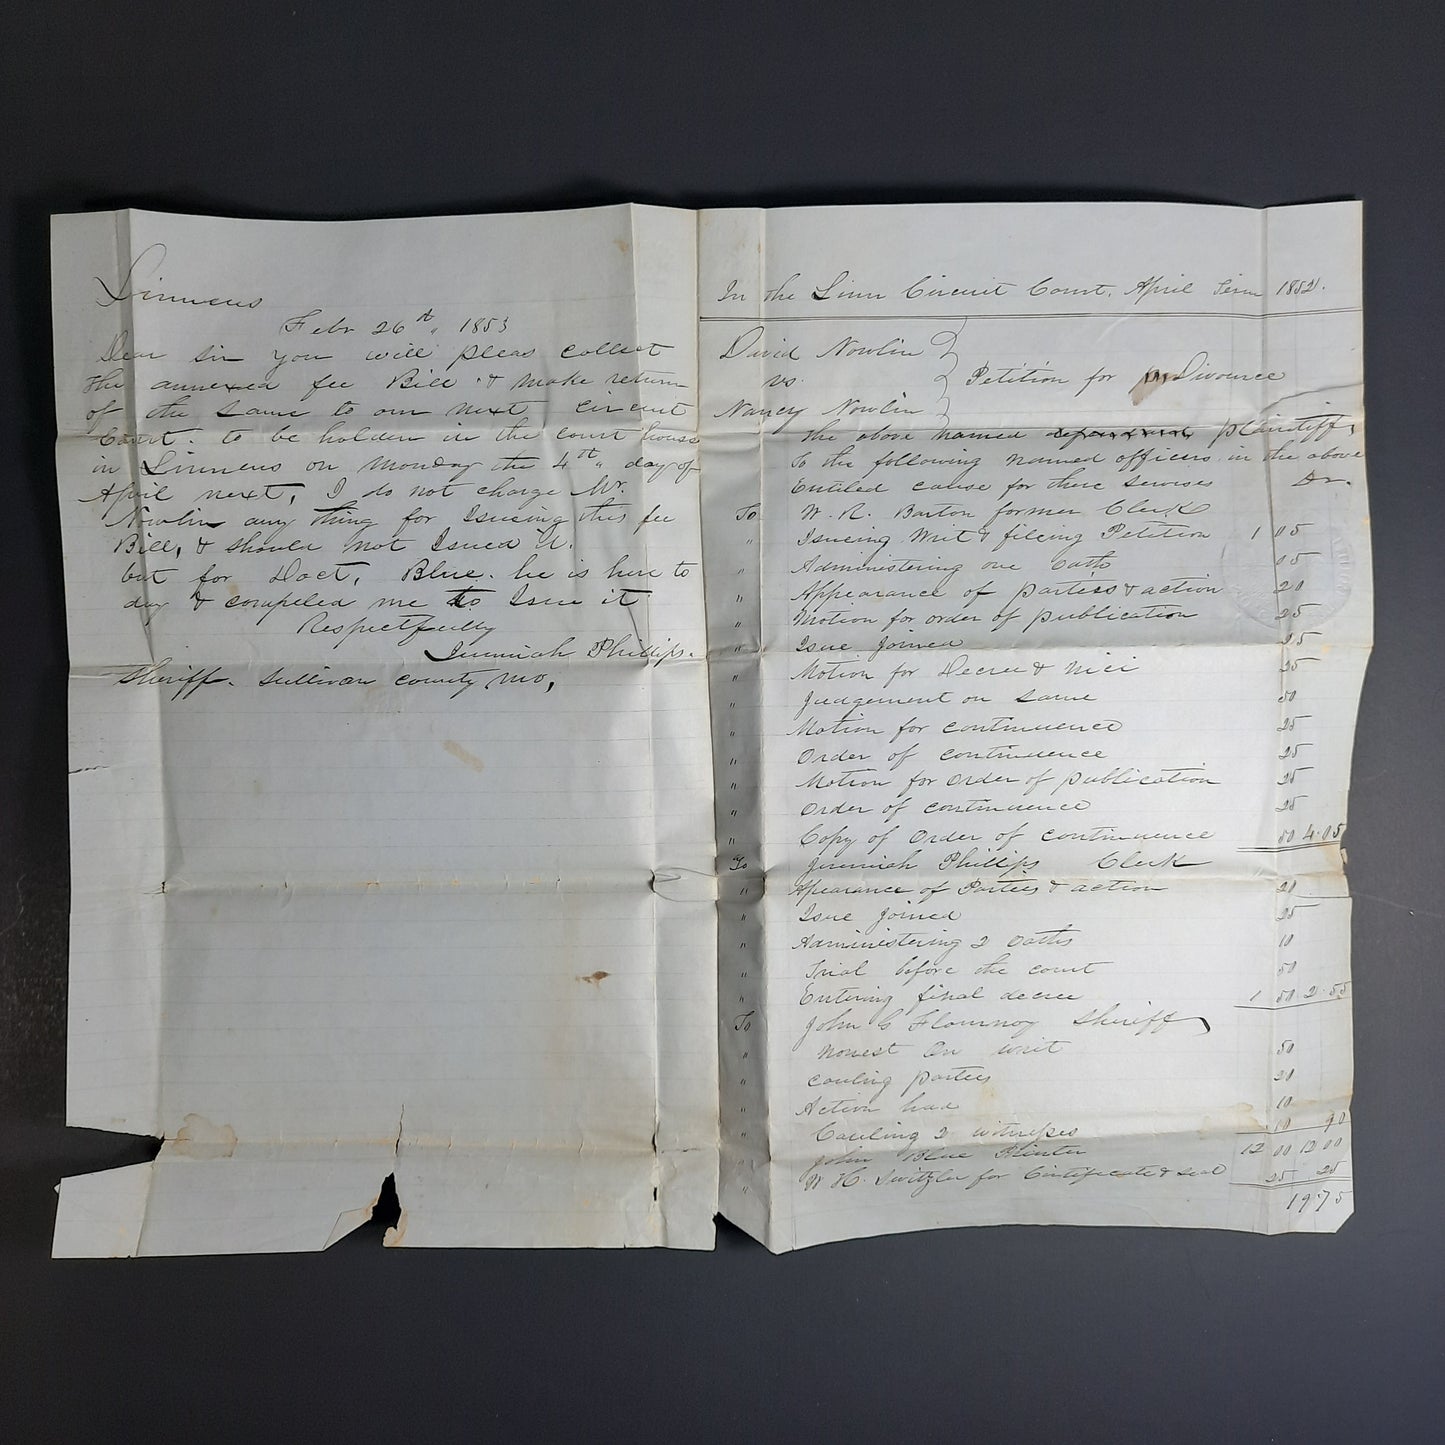 Linneus
Febr 26th 1853
Dear Sir you will pleas collect
the annexed fee Bill & make return
of the same to our next circuit
Court. to be holden in the court house
in Linneus on Monday the 4th day of
April next, I do not charge Mr.
Nowlin any thing for Issueing this fee
Bill, & should not Issued it.
but for Doct, Blue. he is here to
day & compeled me to Issue it
Respectfully
Jeremiah Phillips.
Sheriff. Sullivan county Mo,
In the Linn Circuit Court, April Term 1852.
David Nowlin
vs.
Petition for Divource
Nancy Nowlin
the above named defendant plaintiff,
To the following named officers in the above
Entitled cause for there servises Dr.
To W. R. Barton former Clerk
" Issueing Writ & fileing Petition 1 05
" Administering one Oath 05
" Appearance of parties & action 20
" Motion for order of publication 25
" Isue Joined 25
" Motion for Decree & Nici 25
" Judgement on same 50
" Motion for continuence 25
" Order of continuence 25
" Motion for order of publication 25
" Order of continuence 25
" Copy of Order of continuence 50 4.05
To Jeremiah Phillips Clerk
" Apearance of Parties & action 20
" Isue joined 25
" Administering 2 oaths 10
" Trial before the court 50
" Entering final decree 1 50 2.55
To John G Flournoy Sheriff
" Nonest On writ 50
" Cauling parties 20
" Action had 10
" Cauling 2 witnesses 10 90
" John Blue Printer 12 00 12 00
" W. H. Switzler for Certificate & seal 25 25
19.75